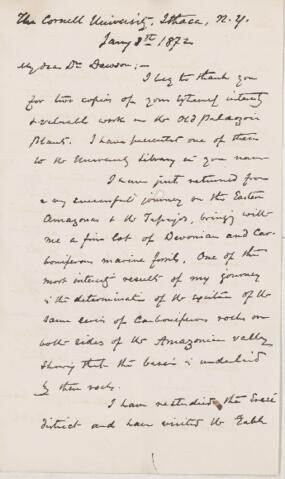 The Cornell University, Ithaca, N.Y.
Jany 8th 1872
My dear Dr. Dawson;—
I beg to thank you
for two copies of your extremely interesting
& valuable work on the Old Palaeozoic
Plants. I have presented one of them
to the University Library in your name
I have just returned from
a very successful journey on the Eastern
Amazonas & the Tapajos, bringing with
me a fine lot of Devonian and Car-
boniferous marine fossils. One of the
most interesting results of my journey
is the determination of the existence of the
same series of Carboniferous rocks on
both sides of the Amazonian valley
showing that the basin is underlaid
by these rocks.
I have restudied the Ereré
district and have visited the Table